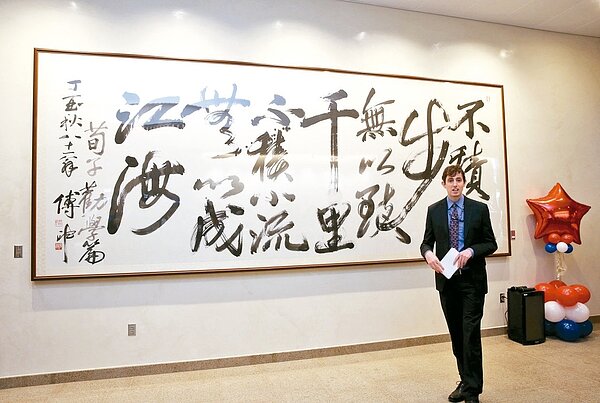 不積
步
無以致
千里
不積小流
無以成
江海
荀子勸學篇
丁亥秋八十
傅